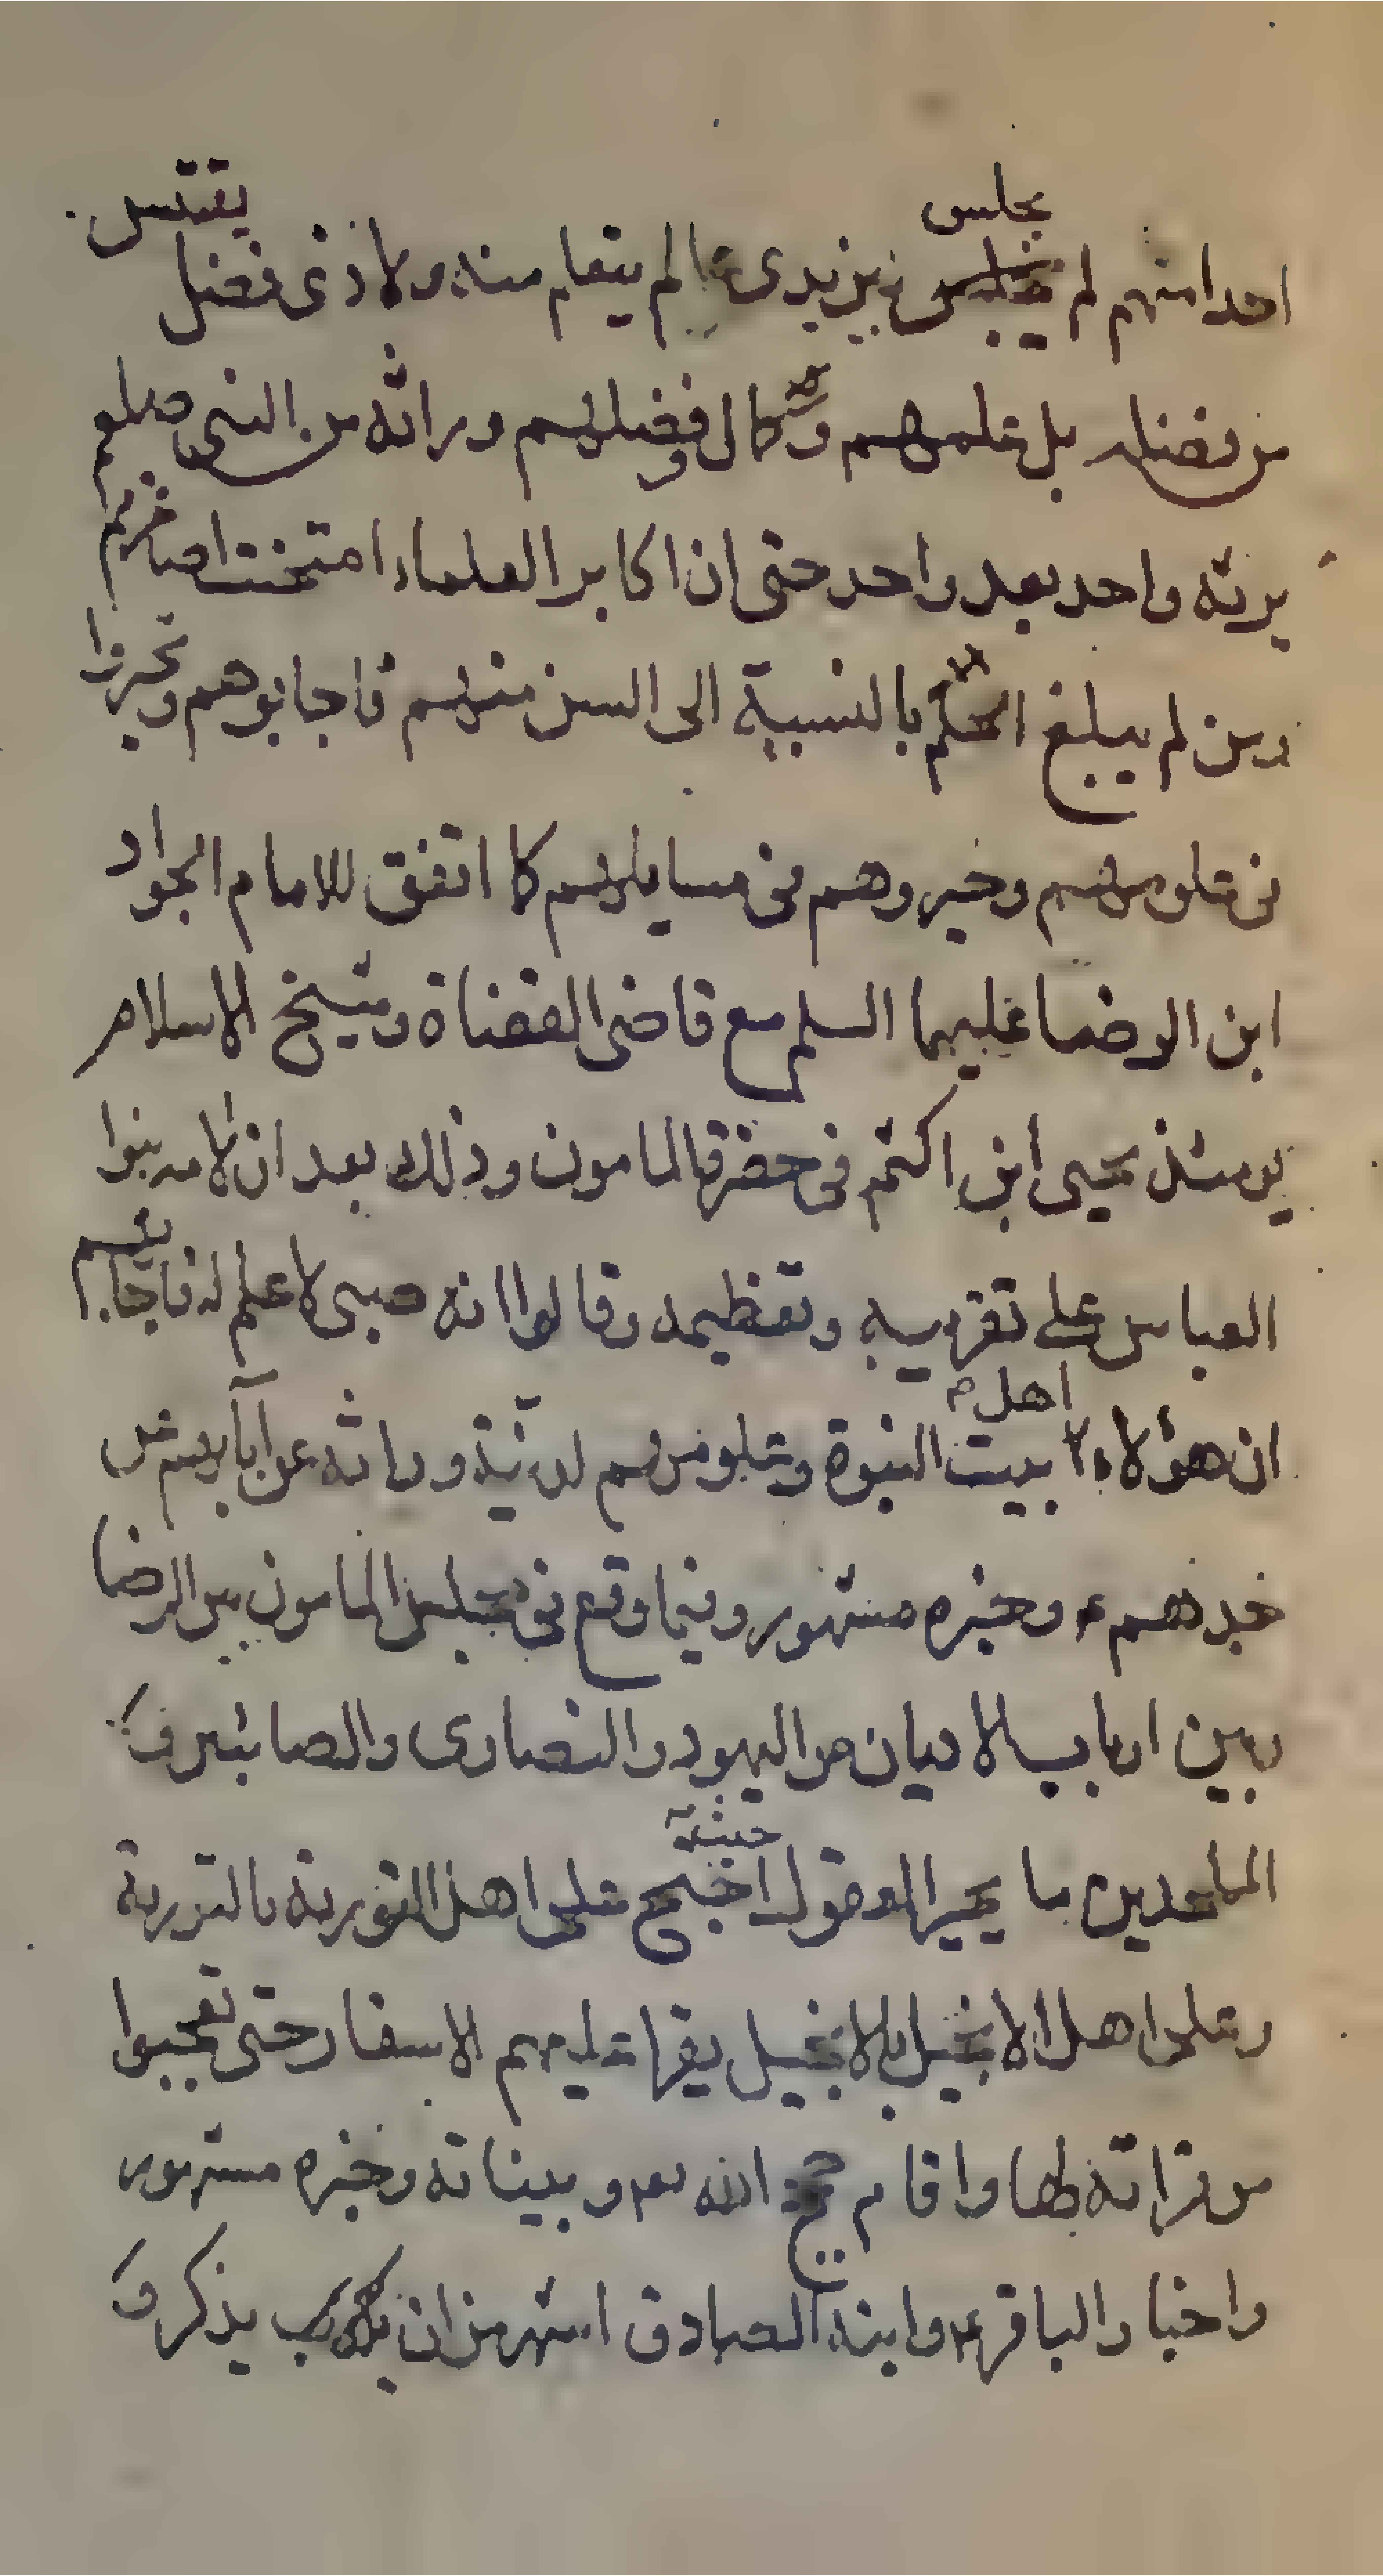 احدا منهم لم يجلس بين يدي عالم يتعلم منه ولا ذي فضل يقتبس
من فضله بل علمهم وكمال فضلهم وراثه من النبي صلعم
يرثه واحد بعد واحد حتى ان اكابر العلماء امتحنت اصاغرهم
ومن لم يبلغ الحلم بالنسبة الى السن منهم فاجابوهم وتحيروا
في علومهم وخبروهم في مسايلهم كما اتفق للامام الجواد
ابن الرضا عليهما السلم مع قاضي القضاة وشيخ الاسلام
يومئذ يحيى ابن اكثم في حضرة المامون وذلك بعد ان لامه بنوا
العباس على تقريبه وتعظيمه وقالوا انه صبي لا علم له فاجابهم
ان هؤلاء اهل بيت النبوة وعلومهم لدنية وراثه عن آبآيهم عن
جدهم وخبره مشهور وفيما وقع في مجلس المامون بين الرضا
وبين ارباب الاديان من اليهود والنصارى والصابئين و
الملحدين ما يحير العقول احتج على اهل التورية بالتورية
وعلى اهل الانجيل بالانجيل يقرا عليهم الاسفار حتى تعجبوا
من قراته لها واقام حجج الله وبيناته وخبره مشهور
واخبار الباقر وابنه الصادق اشهر من ان يذكر و